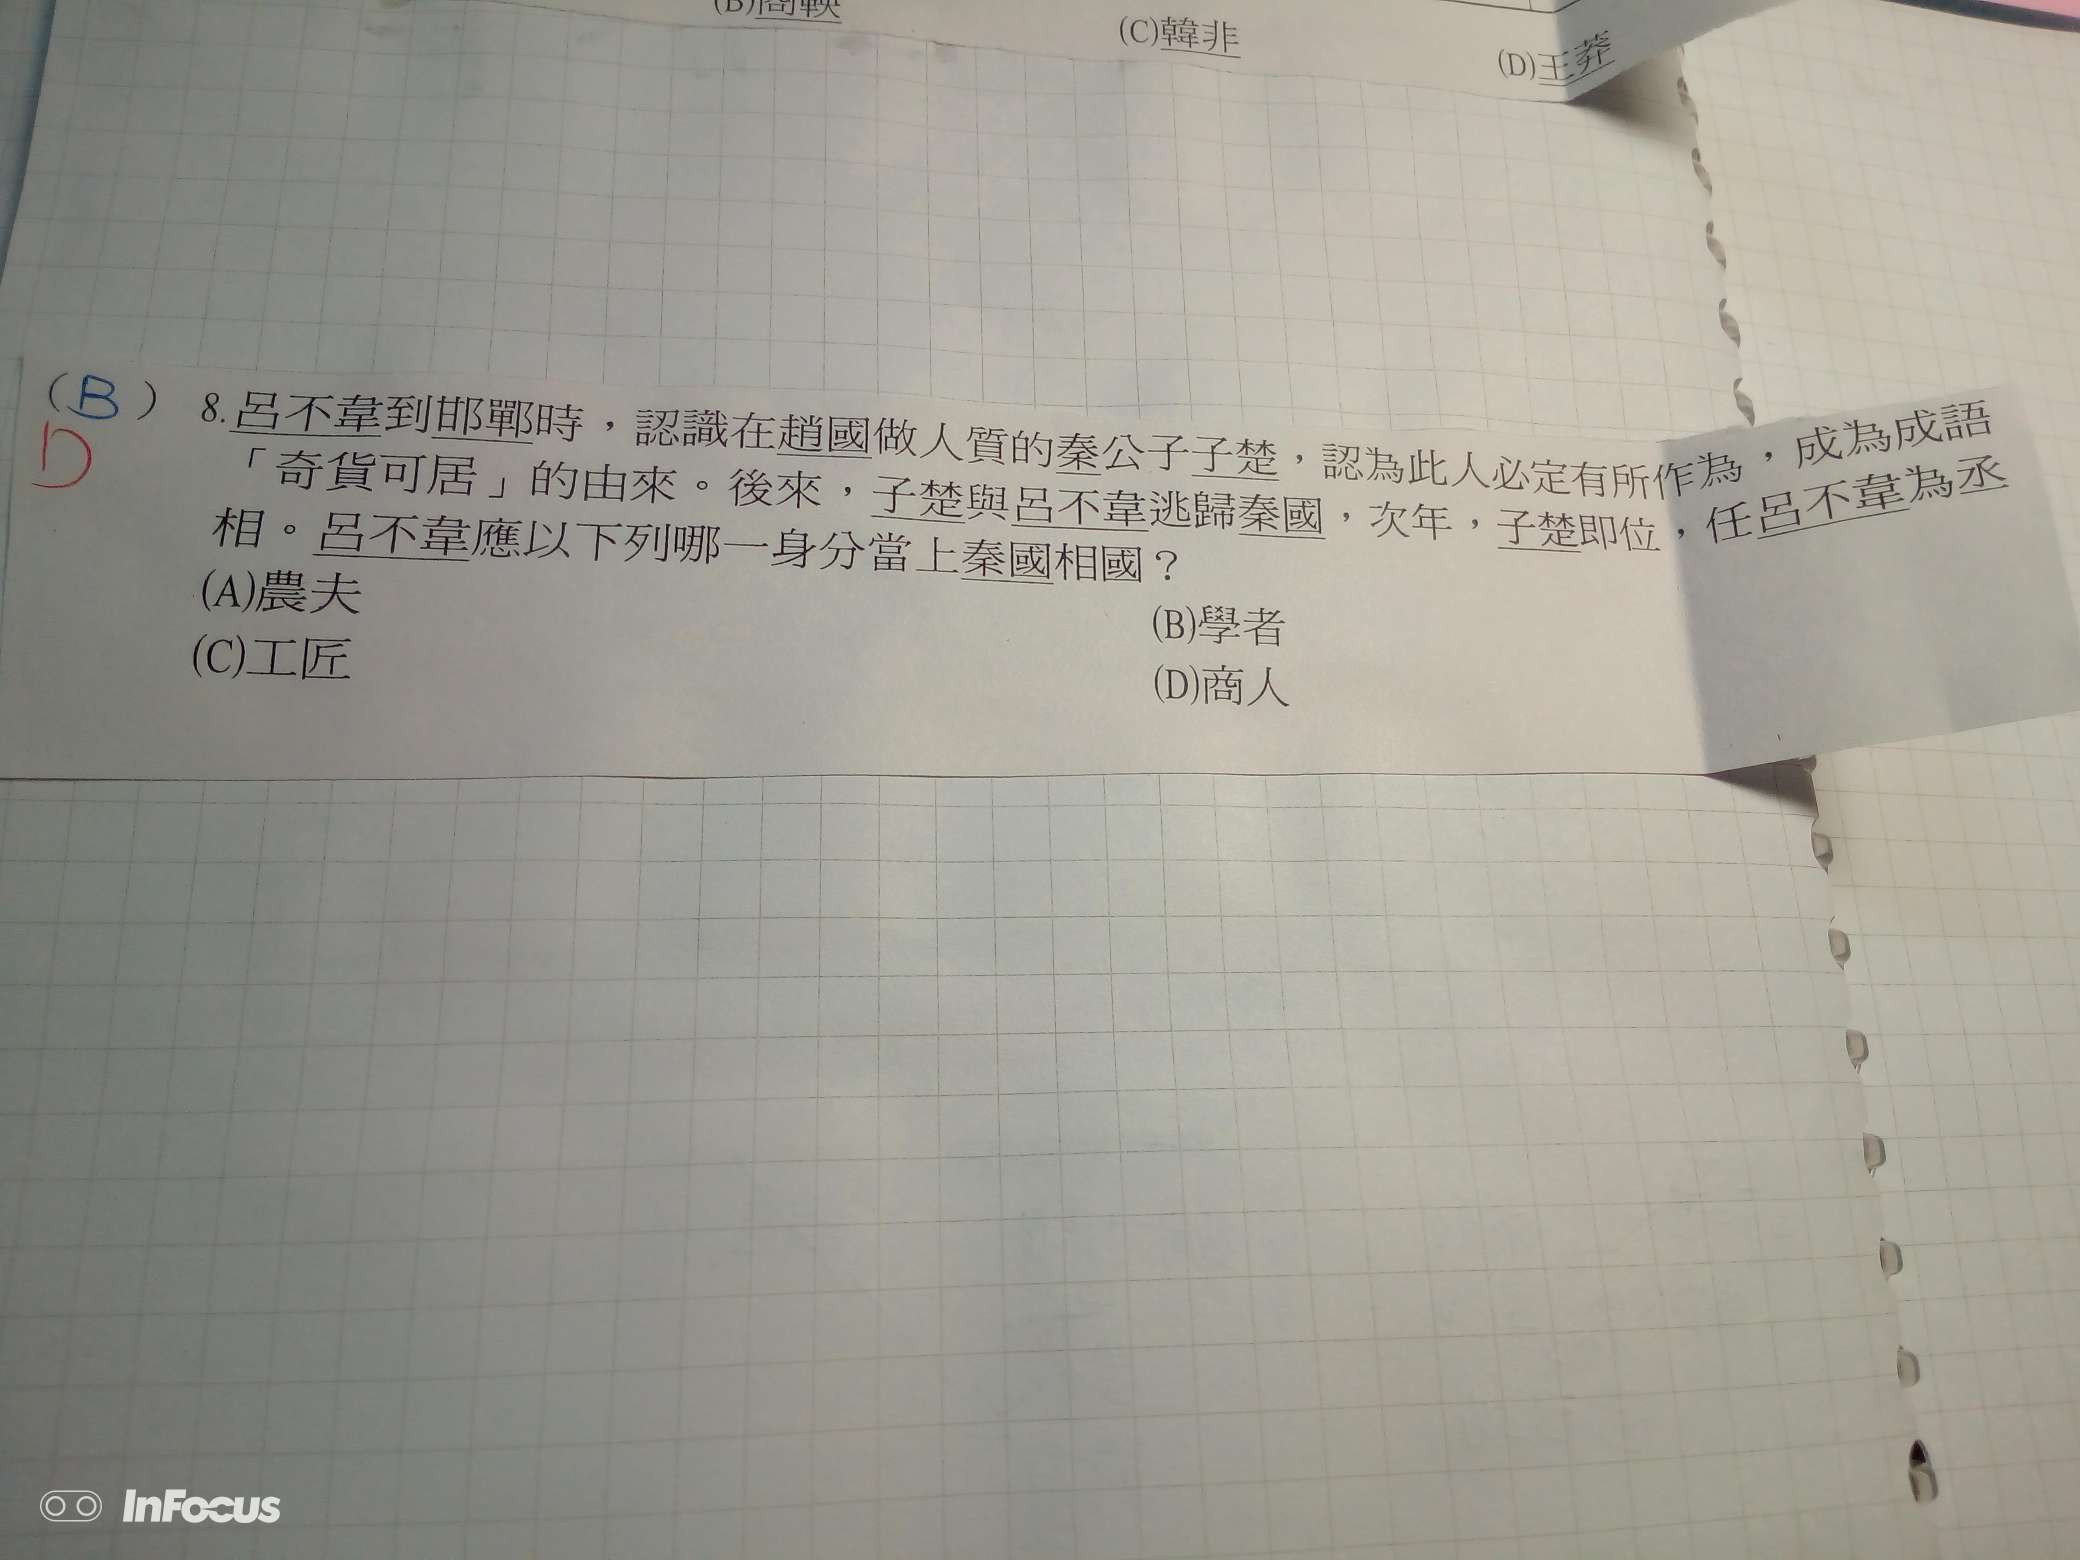 (B)商鞅
(C)韓非
(D)王莽
(B) 8.呂不韋到邯鄲時，認識在趙國做人質的秦公子子楚，認為此人必定有所作為，成為成語
D
「奇貨可居」的由來。後來，子楚與呂不韋逃歸秦國，次年，子楚即位，任呂不韋為丞
相。呂不韋應以下列哪一身分當上秦國相國？
(A)農夫
(B)學者
(C)工匠
(D)商人
InFocus